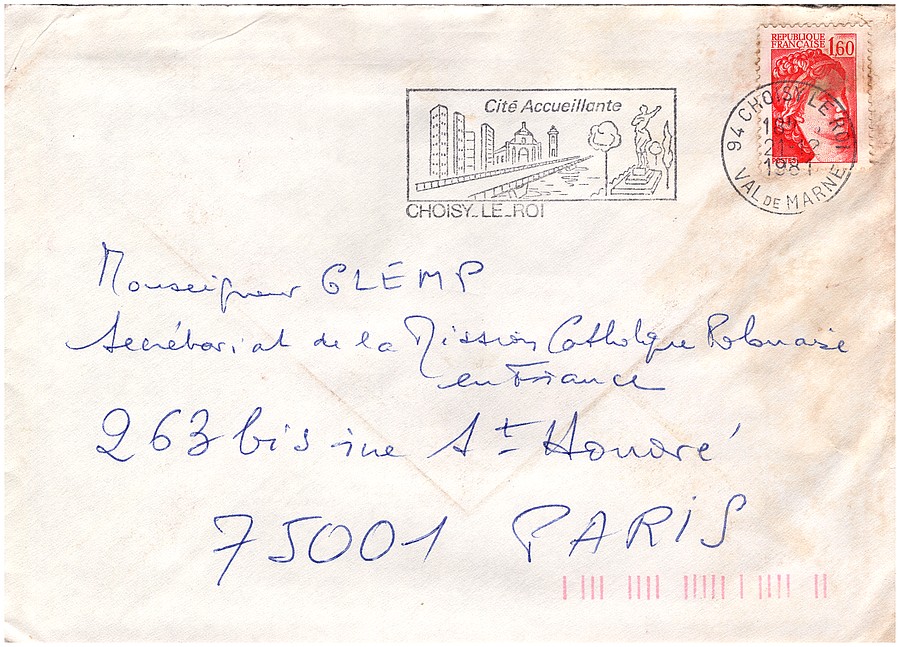 RÉPUBLIQUE
FRANÇAISE 1,60
POSTES
Cité Accueillante
CHOISY_LE_ROI
94 CHOISY LE ROI
21
1981
VAL DE MARNE
Monseigneur GLEMP
Secrétariat de la Mission Catholique Polonaise
en France
263 bis rue St Honoré
75001 PARIS